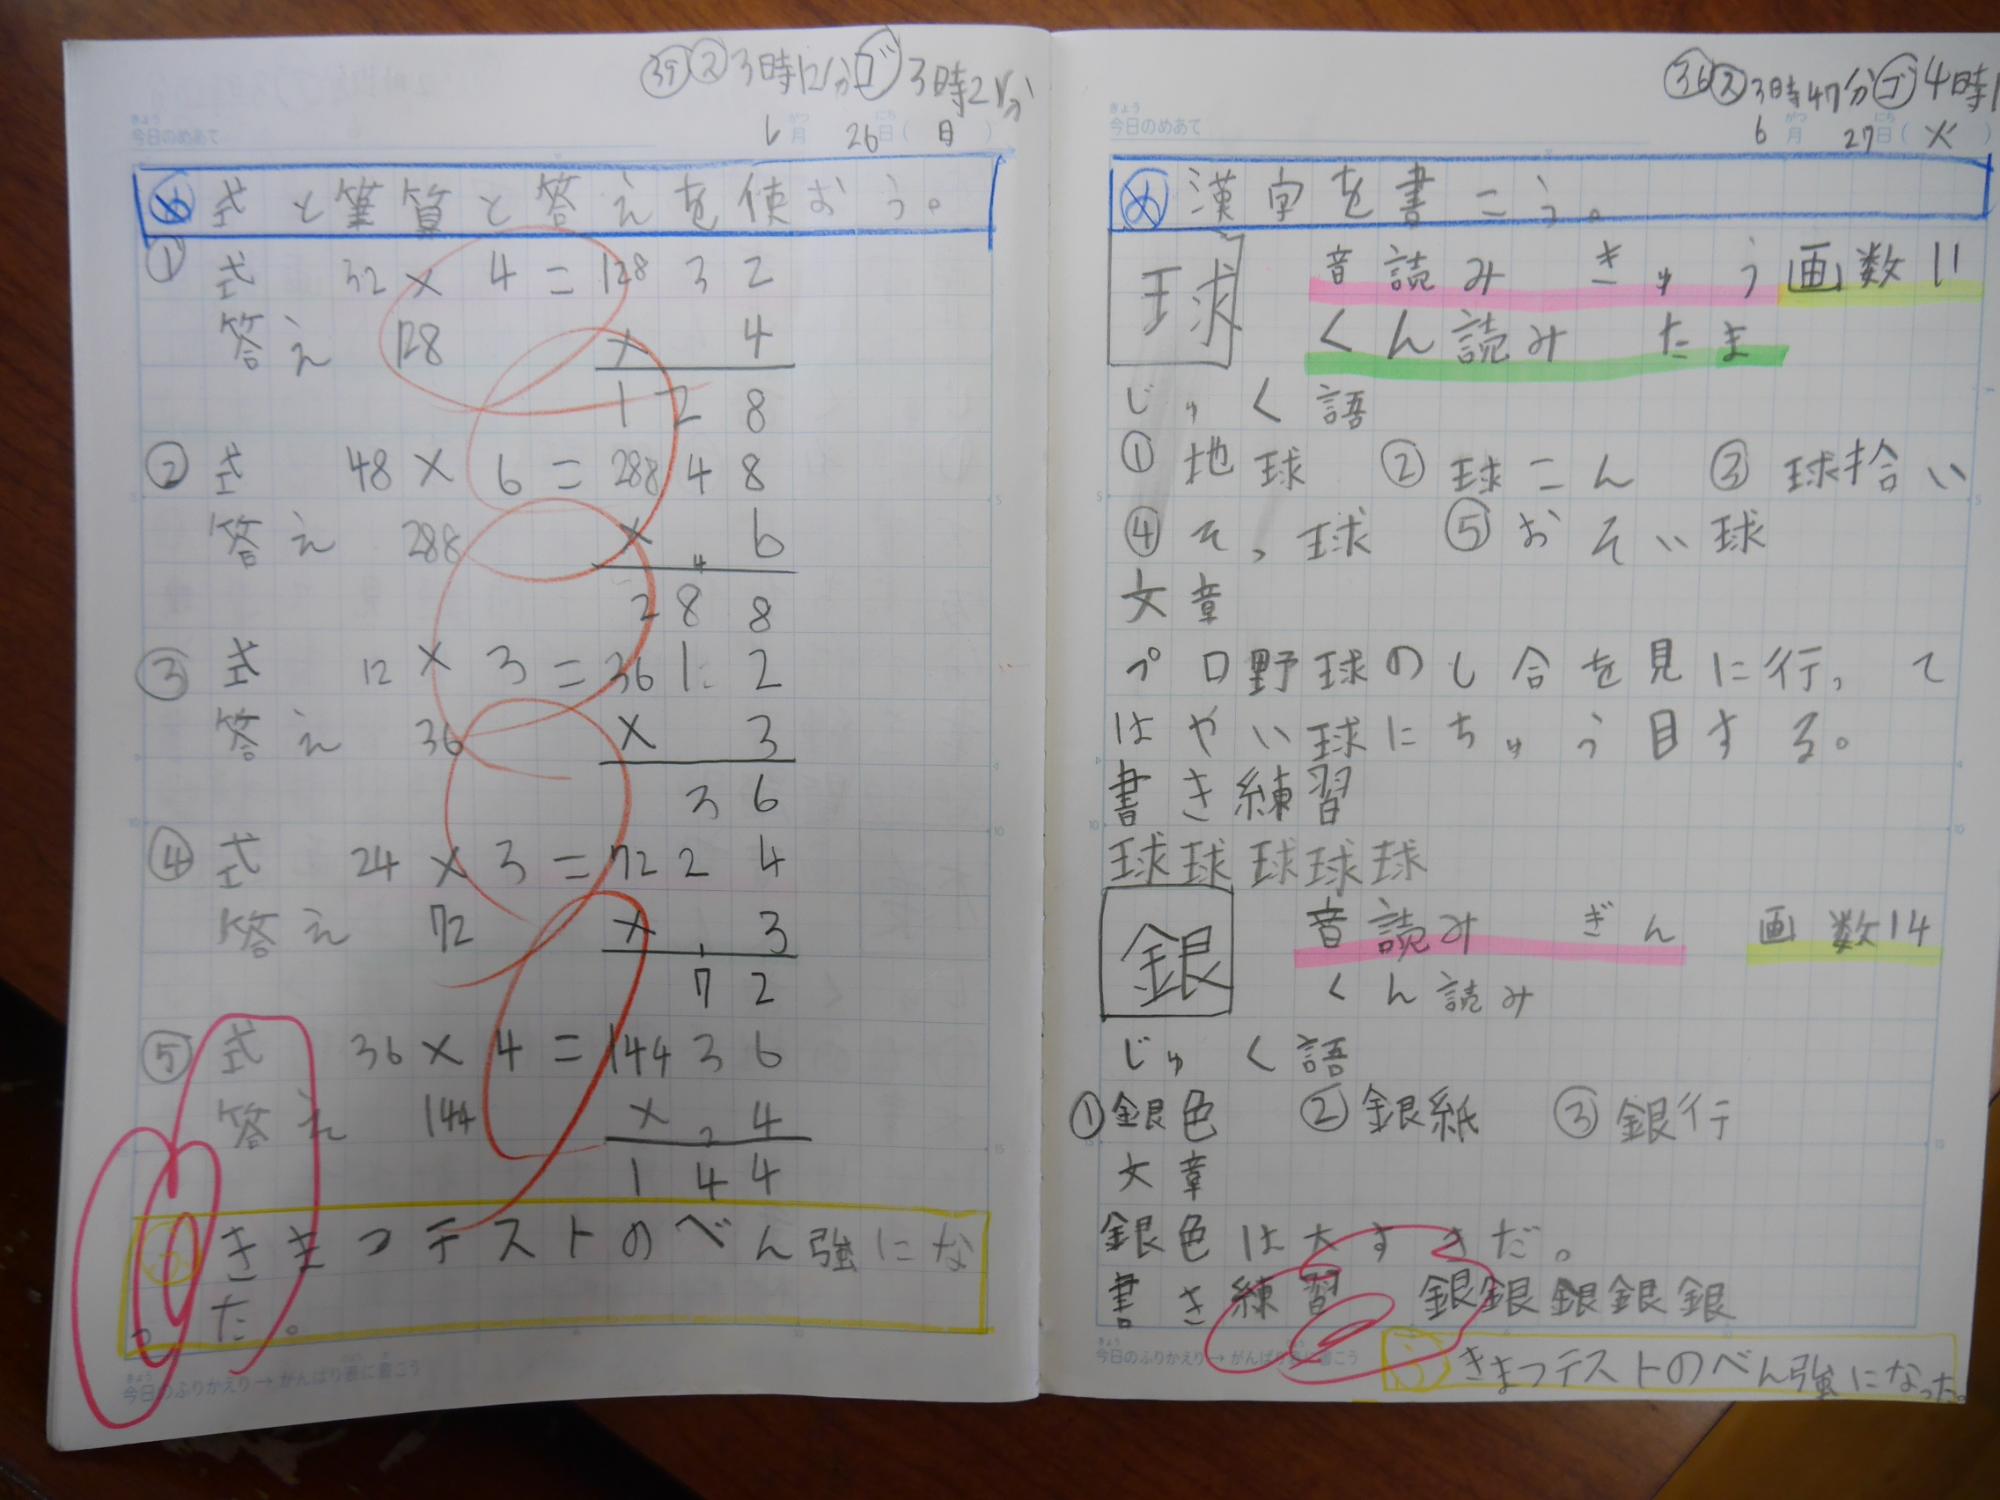 ㉟ ス 3時12分 ゴ 3時2分
きょう
今日のめあて
6月 26日( 日 )
め 式と筆算と答えを使おう。
① 式 32×4=128
答え 128
32
× 4
128
② 式 48×6=288
答え 288
48
× 6
4
288
③ 式 12×3=36
答え 36
12
× 3
36
④ 式 24×3=72
答え 72
24
× 3
1
72
⑤ 式 36×4=144
答え 144
36
× 4
2
144
ふ きまつテストのべん強にな
った。
きょう
今日のふりかえり→がんばり表に書こう
㊱ ス 3時47分 ゴ 4時1
きょう
今日のめあて
6月 27日( 火 )
め 漢字を書こう。
球 音読み きゅう 画数11
くん読み たま
じゅく語
① 地球 ② 球こん ③ 球拾い
④ そっ球 ⑤ おそい球
文章
プロ野球のし合を見に行って
はやい球にちゅう目する。
書き練習
球球球球球
銀 音読み ぎん 画数14
くん読み
じゅく語
① 銀色 ② 銀紙 ③ 銀行
文章
銀色は大すきだ。
書き練習 銀銀銀銀銀
きょう
今日のふりかえり→がんばり表に書こう
ふ きまつテストのべん強になった。